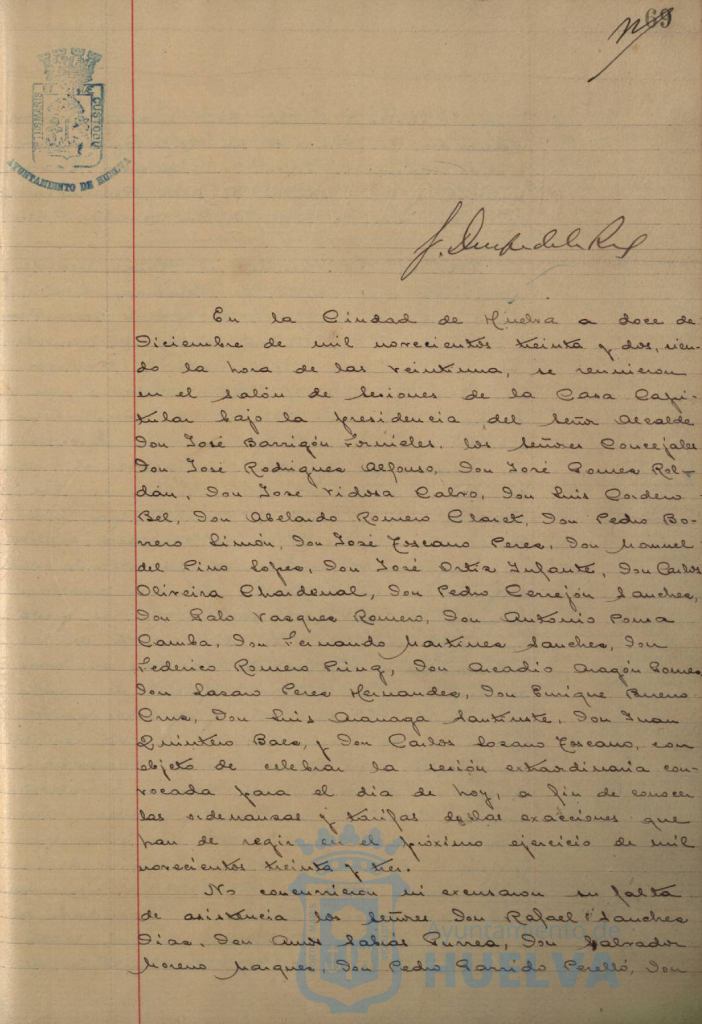 69
PORTUS MARIS
CUSTODIA
AYUNTAMIENTO DE HUELVA
En la Ciudad de Huelva a doce de
Diciembre de mil novecientos treinta y dos, sien-
do la hora de las veintiuna, se reunieron
en el salón de Sesiones de la Casa Capi-
tular bajo la presidencia del Señor Alcalde
Don José Barrigón Fornieles. los Señores Concejales
Don José Rodriguez Alfonso, Don José Gomez Rol-
dán, Don José Vidosa Calvo, Don Luis Cordero
Bel, Don Abelardo Romero Claret, Don Pedro Bo-
rrero Limón, Don José Toscano Perez, Don Manuel
del Pino Lopez, Don José Ortiz Infante, Don Carlos
Oliveira Chardenal, Don Pedro Cerrejón Sanchez,
Don Galo Vazquez Romero, Don António Ponce
Camba, Don Fernando Martinez Sanchez, Don
Federico Romero Pring, Don Arcadio Aragón Gomez
Don Lazaro Perez Hernandez, Don Enrique Bueno
Cruz, Don Luis Aranaga Santiuste, Don Juan
Quintero Baez, y Don Carlos Lozano Toscano, con
objeto de celebrar la sesión extraordinaria con-
vocada para el dia de hoy, a fin de conocer
las ordenanzas y tarifas de las exacciones que
han de regir en el próximo ejercicio de mil
novecientos treinta y tres.
No concurrieron ni excusaron su falta
de asistencia los Señores Don Rafael Sanchez
Diaz, Don Amós Sabrás Gurrea, Don Salvador
Moreno Marquez, Don Pedro Garrido Perelló, Don
Ayuntamiento de
HUELVA